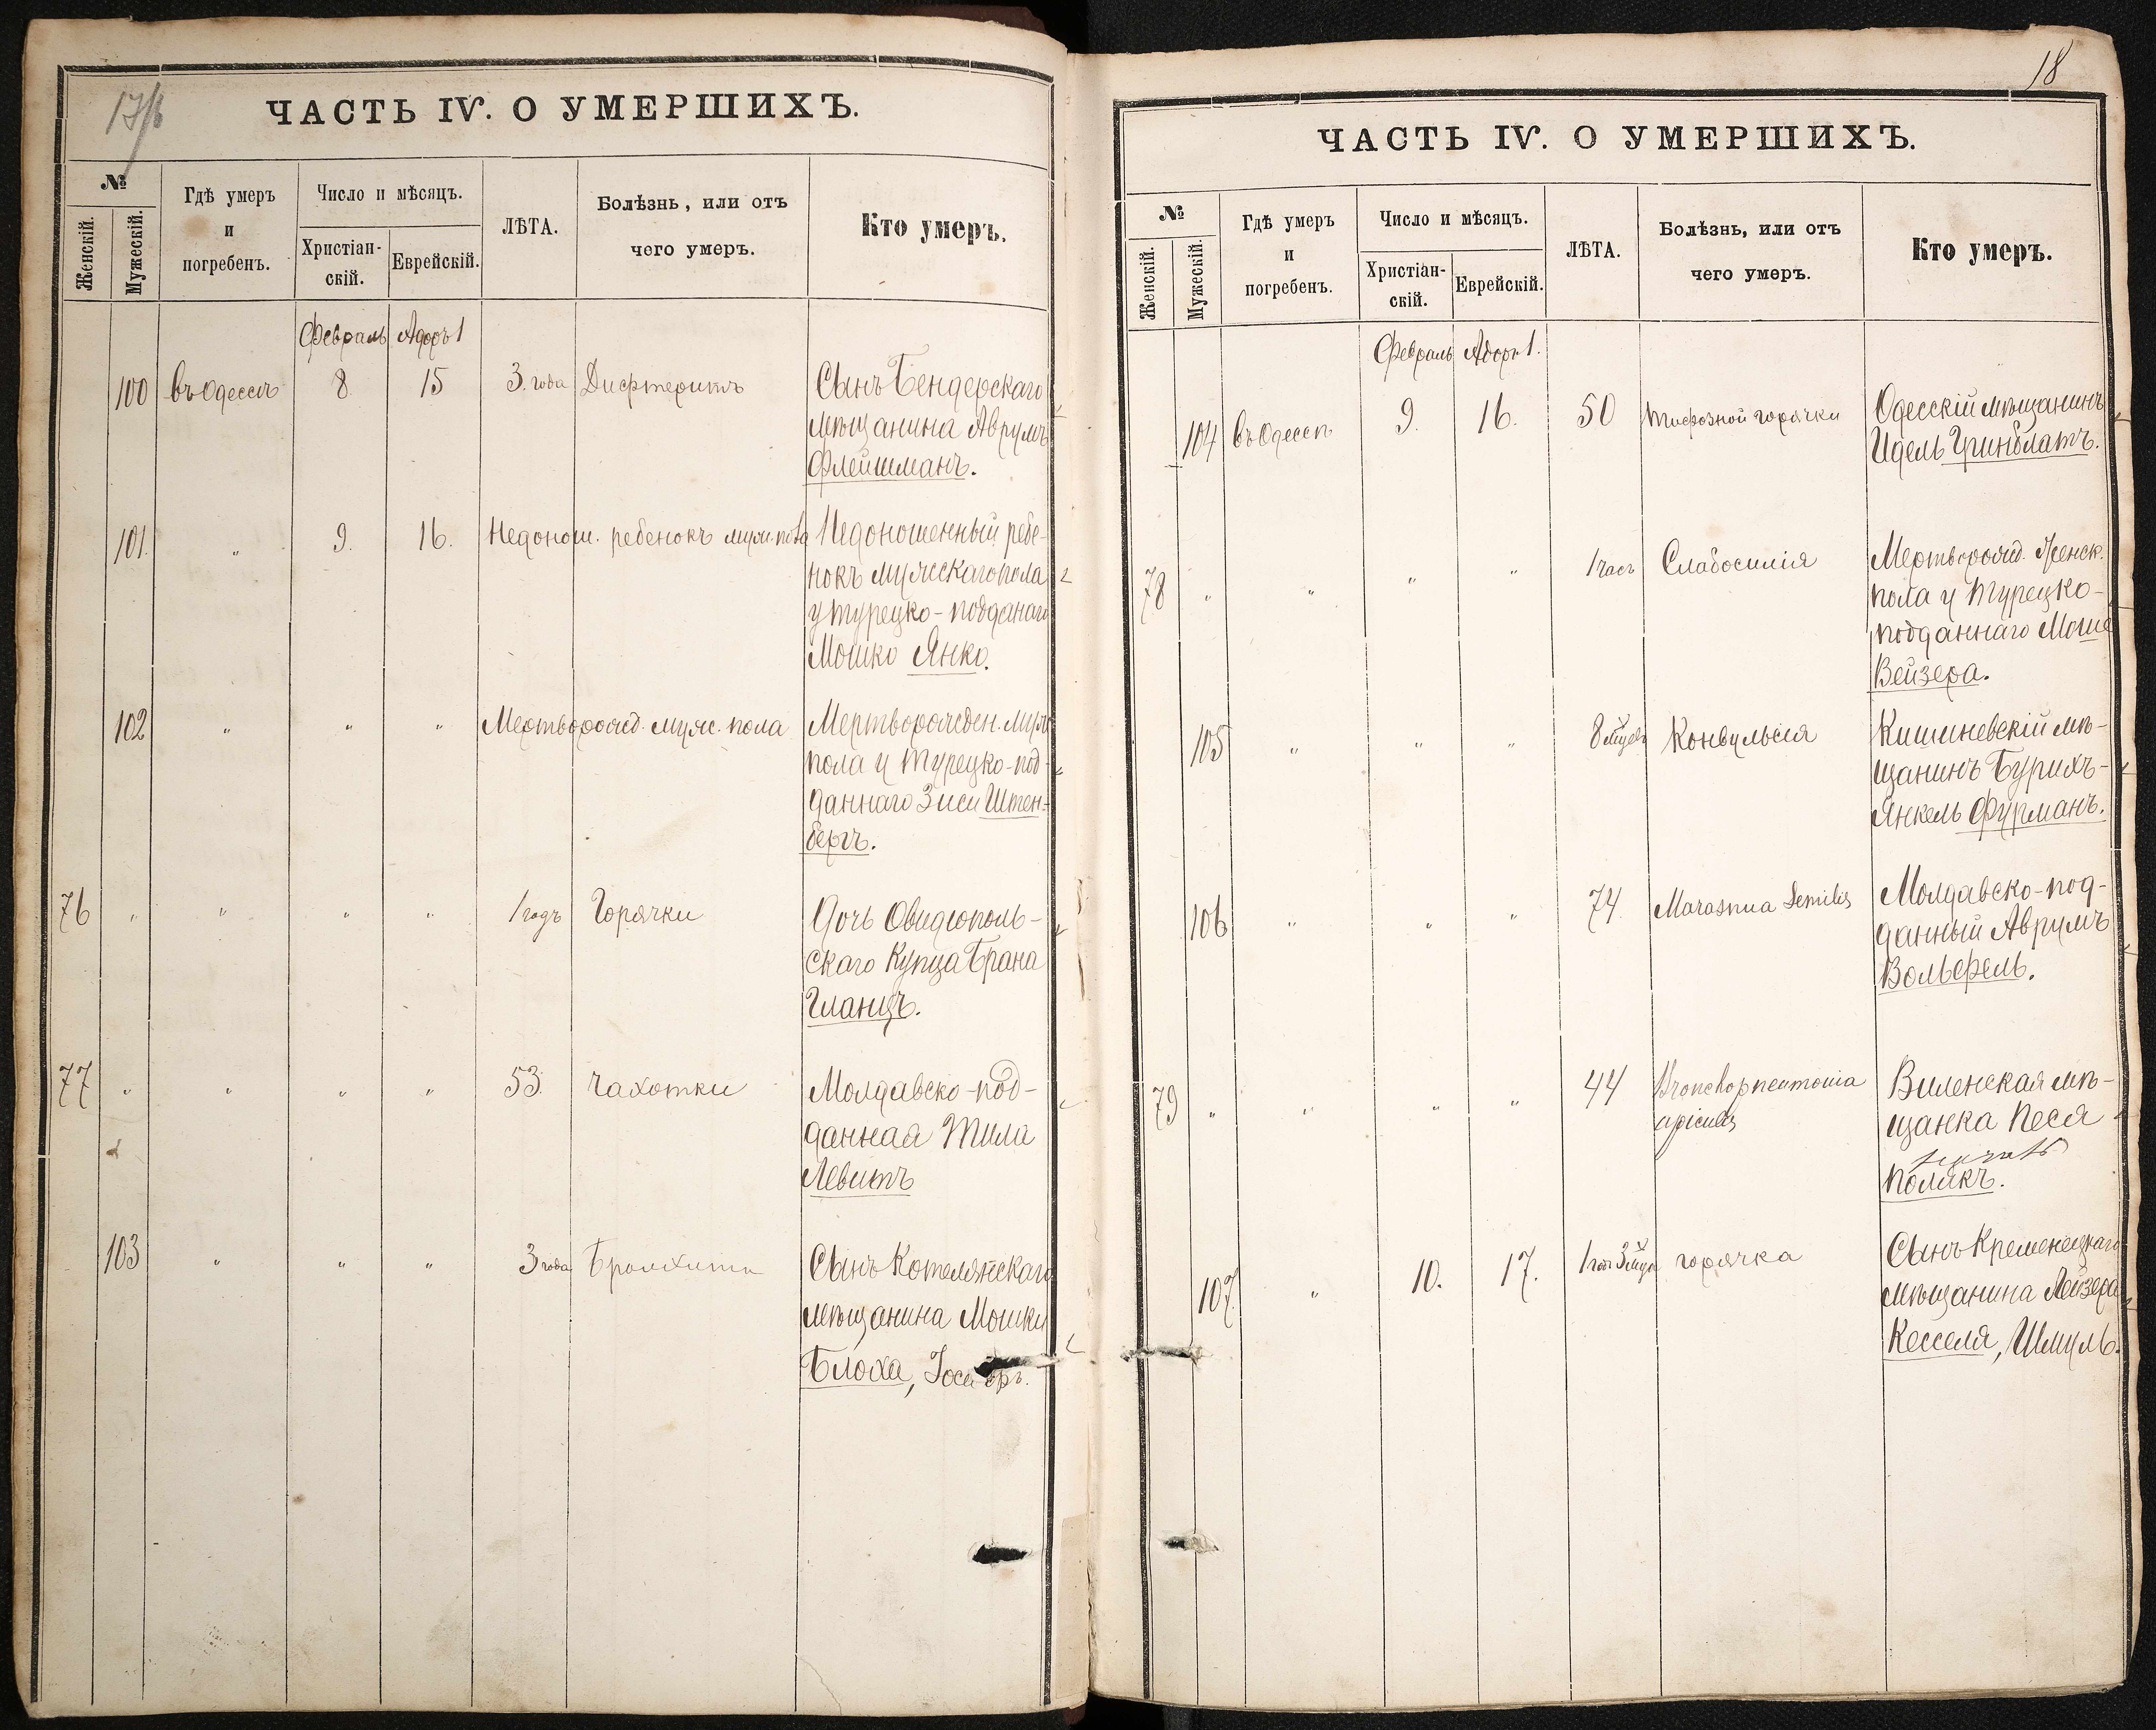 ЧАСТЬ IV. О УМЕРШИХЪ.
№
Женскій.
Мужескій.
Гдѣ умеръ
и
погребенъ.
Число и мѣсяцъ.
Христіан-
скій.
Еврейскій.
ЛѢТА.
Болѣзнь, или отъ
чего умеръ.
Кто умеръ.
Февраль Адоръ 1
100 въ Одессѣ 8 15 3. года Дифтеритъ Сынъ Бендерскаго
мѣщанина Аврумъ
Флейшманъ.
101. " 9. 16. Недонош. ребенокъ муж. пола Недоношенный ребе-
нокъ мужескаго пола
у турецко-подданаго
Мошко Янко.
102 " " " Мертворожд. муж. пола Мертворожден. муж
пола у Турецко-под-
даннаго Зиси Штен-
бергъ.
76 " " " " 1 годъ Горячки Дочь Овидіополь-
скаго Купца Брана
Гланцъ.
77 " " " " 53. Чахотки Молдавско-под-
данная Тила
Левитъ
103 " " " 3 года Бронхита Сынъ Котелянскаго
мѣщанина Мошки
Блоха,
18
ЧАСТЬ IV. О УМЕРШИХЪ.
№
Женскій.
Мужескій.
Гдѣ умеръ
и
погребенъ.
Число и мѣсяцъ.
Христіан-
скій.
Еврейскій.
ЛѢТА.
Болѣзнь, или отъ
чего умеръ.
Кто умеръ.
Февраль Адоръ 1.
104 въ Одессѣ 9. 16. 50 тифозной горячки Одесскій мѣщанинъ
Идель Гринблатъ.
78 " " " " 1 часъ Слабосилія Мертворожд. Женск.
пола у Турецко-
подданнаго Моше
Вейзера.
105 " " " 8 Конвульсія Кишиневскій мѣ-
щанинъ Бурихъ-
Янкель Фурманъ.
106 " " " 74. Marasmua Senilis Молдавско-под-
данный Аврумъ
Вольфель.
79 " " " " 44 Bronchopneumonia Виленская мѣ-
щанка Песя
Полякъ.
107. " 10. 17. горячка Сынъ Кременецкаго
мѣщанина Лейзера
Кесселя, Шмуль.